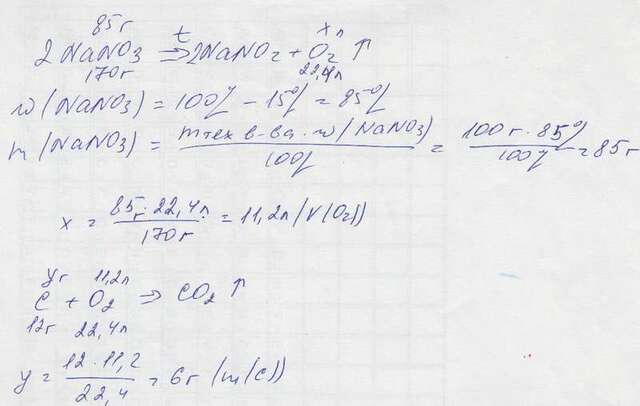 85г x л
2 NaNO3 t⇒ 2NaNO2 + O2 ↑
170г 22,4л
w (NaNO3) = 100% - 15% = 85%
m (NaNO3) = mтех в-ва · w (NaNO3) / 100% = 100 г · 85% / 100% = 85г
x = 85г · 22,4л / 170г = 11,2л (V(O2))
yг 11,2л
C + O2 ⇒ CO2 ↑
12г 22,4л
y = 12 · 11,2 / 22,4 = 6г (m(C))